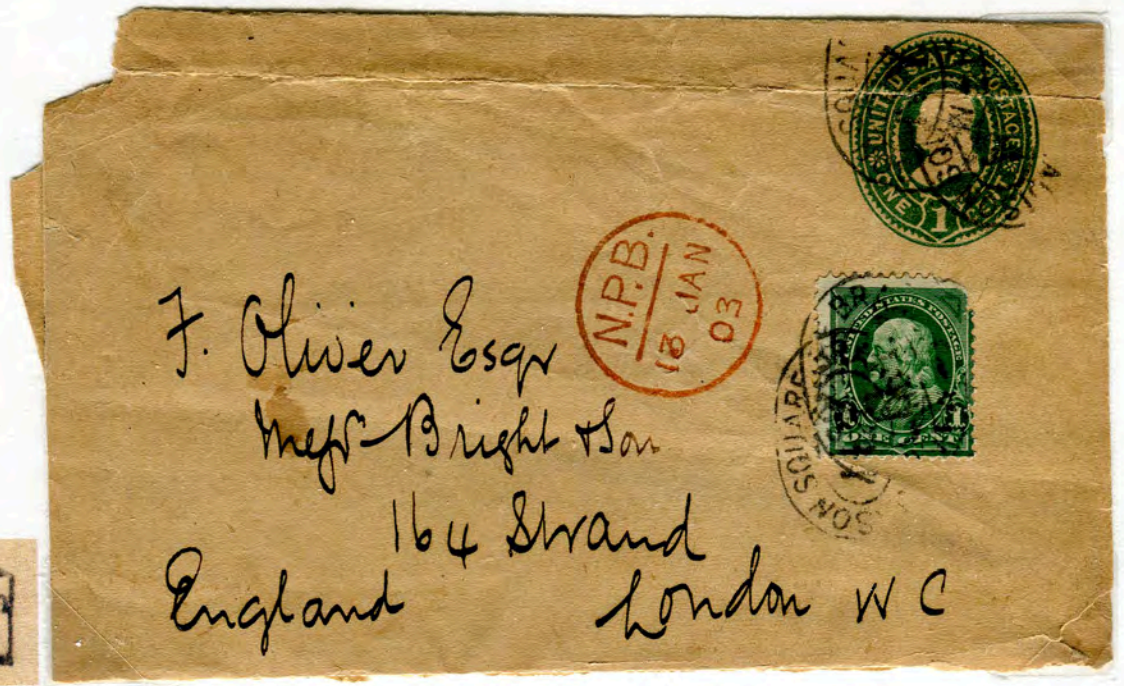 UNITED STATES POSTAGE
ONE 1 CENT
N.P.B.
18 JAN
03
UNITED STATES POSTAGE
1 1
ONE CENT
SQUARE
SON SQUARE
F. Oliver Esqr
Messrs Bright & Son
164 Strand
England London W C